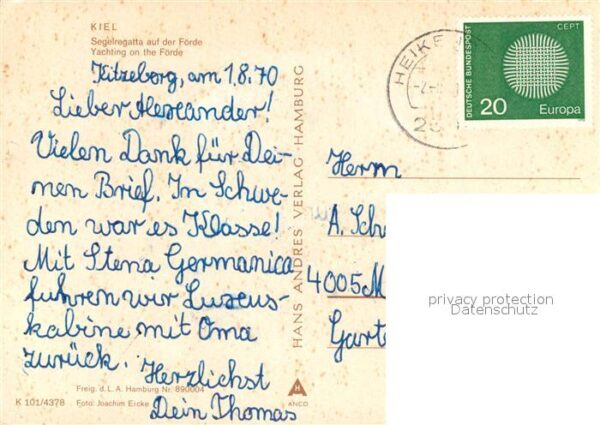 KIEL
Segelregatta auf der Förde
Yachting on the Förde
Kitzeberg, am 1.8.70
Lieber Alexander!
Vielen Dank für Dei-
nen Brief. In Schwe-
den war es Klasse!
Mit Stena Germanica
fuhren wir Luxus-
kabine mit Oma
zurück. Herzlichst
Dein Thomas
Freig. d. L. A. Hamburg Nr. 890004
K 101/4378 Foto: Joachim Eicke
HANS ANDRES VERLAG · HAMBURG
H
ANCO
HEIKE
23
CEPT
DEUTSCHE BUNDESPOST
20 Europa
Herrn
A. Sch
4005 M
Garte
privacy protection
Datenschutz